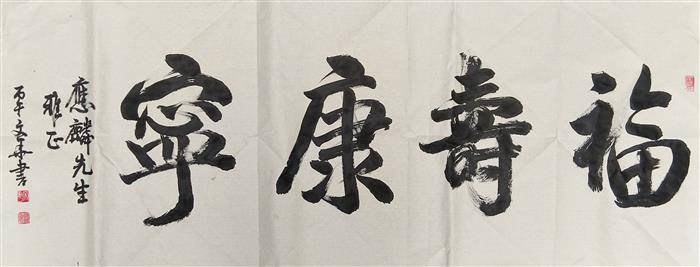 福壽康寧
應麟先生
雅正
丙午文華書